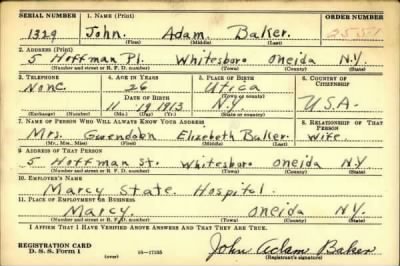 SERIAL NUMBER 1. NAME (Print) ORDER NUMBER
1329 John. Adam. Baker.
(First) (Middle) (Last)
2. ADDRESS (Print)
5 Hoffman Pl. Whitesboro Oneida N.Y.
(Number and street or R. F. D. number) (Town) (County) (State)
3. TELEPHONE 4. AGE IN YEARS 5. PLACE OF BIRTH 6. COUNTRY OF CITIZENSHIP
None. 26 Utica
(Town or county)
DATE OF BIRTH
11 19 1913 N.Y. U.S.A.
(Exchange) (Number) (Mo.) (Day) (Yr.) (State or country)
7. NAME OF PERSON WHO WILL ALWAYS KNOW YOUR ADDRESS 8. RELATIONSHIP OF THAT PERSON
Mrs. Gwendolyn Elizebeth Baker. Wife.
(Mr., Mrs., Miss) (First) (Middle) (Last)
9. ADDRESS OF THAT PERSON
5 Hoffman St. Whitesboro Oneida N.Y
(Number and street or R. F. D. number) (Town) (County) (State)
10. EMPLOYER'S NAME
Marcy State Hospital.
11. PLACE OF EMPLOYMENT OR BUSINESS
Marcy. Oneida N.Y.
(Number and street or R. F. D. number) (Town) (County) (State)
I AFFIRM THAT I HAVE VERIFIED ABOVE ANSWERS AND THAT THEY ARE TRUE.
REGISTRATION CARD
D. S. S. Form 1 (over) 16—17105 John Adam Baker
(Registrant's signature)